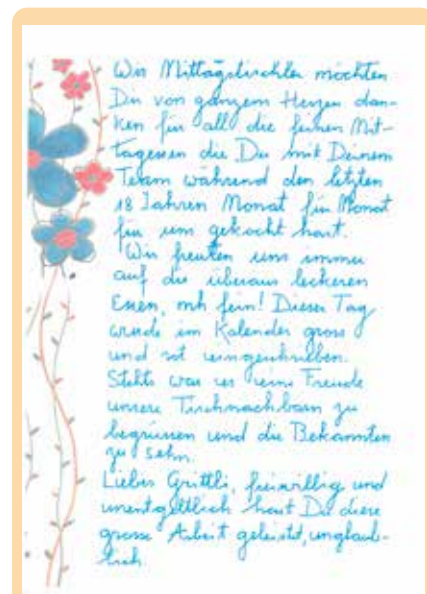 Wir Mittagstischler möchten
Dir von ganzem Herzen dan-
ken für all die feinen Mit-
tagessen die Du mit Deinem
Team während den letzten
18 Jahren Monat für Monat
für uns gekocht hast.
Wir freuten uns immer
auf die überaus leckeren
Essen, mh fein! Dieser Tag
wurde im Kalender gross
und rot eingeschrieben.
Stehts war es eine Freude
unsere Tischnachbarn zu
begrüssen und die Bekannten
zu sehn.
Liebes Grittli, freiwillig und
unentgeltlich hast Du diese
grosse Arbeit geleistet, unglaub-
lich.